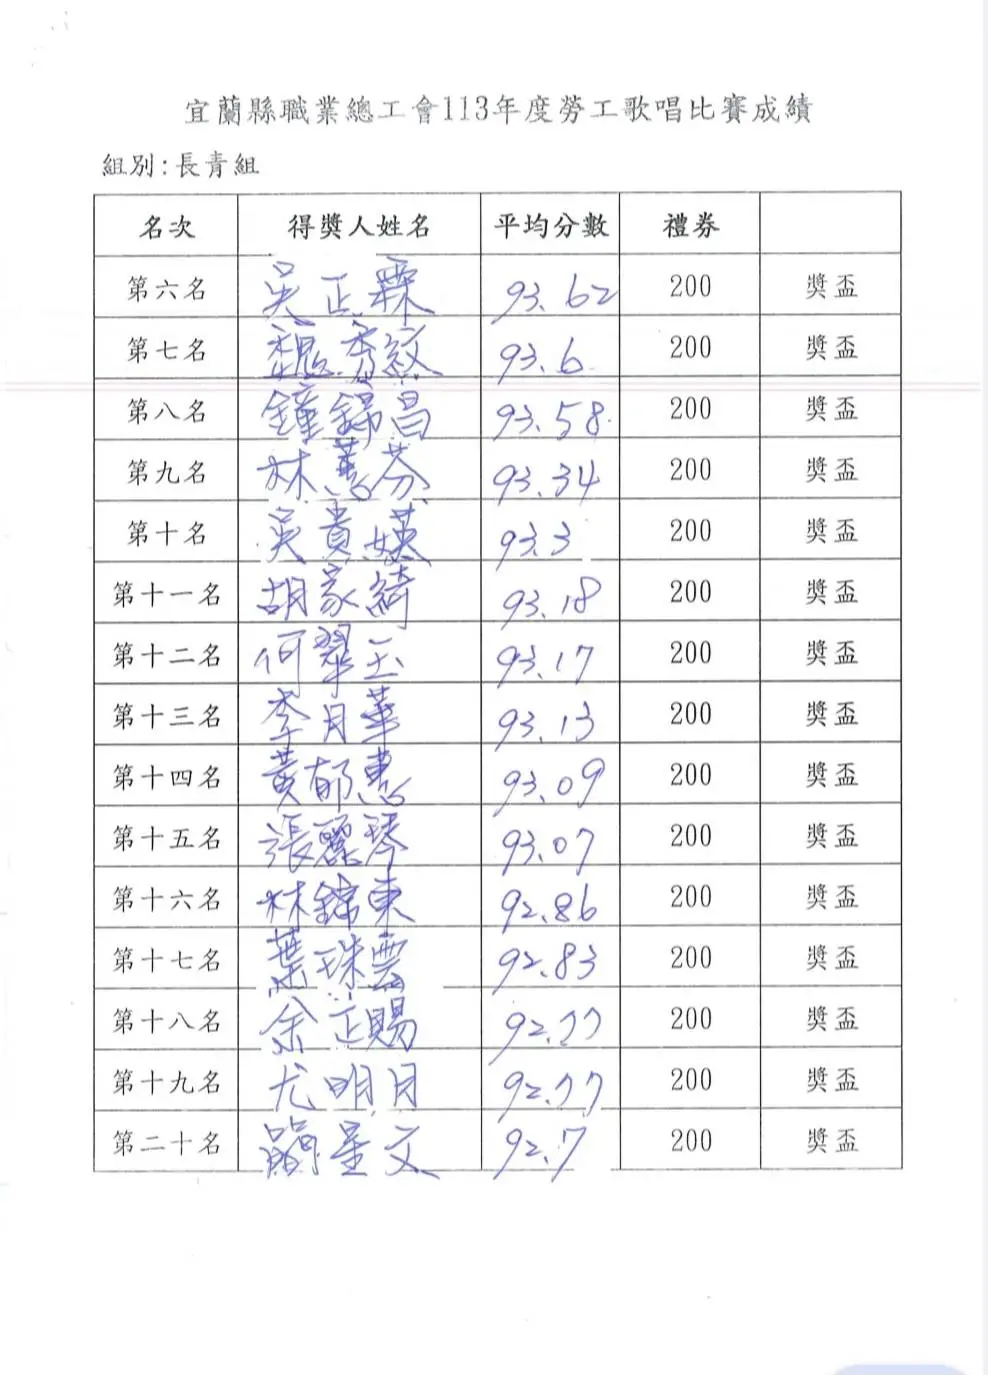 宜蘭縣職業總工會113年度勞工歌唱比賽成績
組別:長青組
名次 得獎人姓名 平均分數 禮券
第六名 吳正霖 93.62 200 獎盃
第七名 魏秀紋 93.6 200 獎盃
第八名 鐘錦昌 93.58 200 獎盃
第九名 林蕙芬 93.34 200 獎盃
第十名 吳貴媖 93.3 200 獎盃
第十一名 胡家綺 93.18 200 獎盃
第十二名 何翠玉 93.17 200 獎盃
第十三名 李月華 93.13 200 獎盃
第十四名 黃郁惠 93.09 200 獎盃
第十五名 張麗琴 93.07 200 獎盃
第十六名 林錦東 92.86 200 獎盃
第十七名 葉珠雲 92.83 200 獎盃
第十八名 余正賜 92.77 200 獎盃
第十九名 尤明月 92.77 200 獎盃
第二十名 文 92.7 200 獎盃